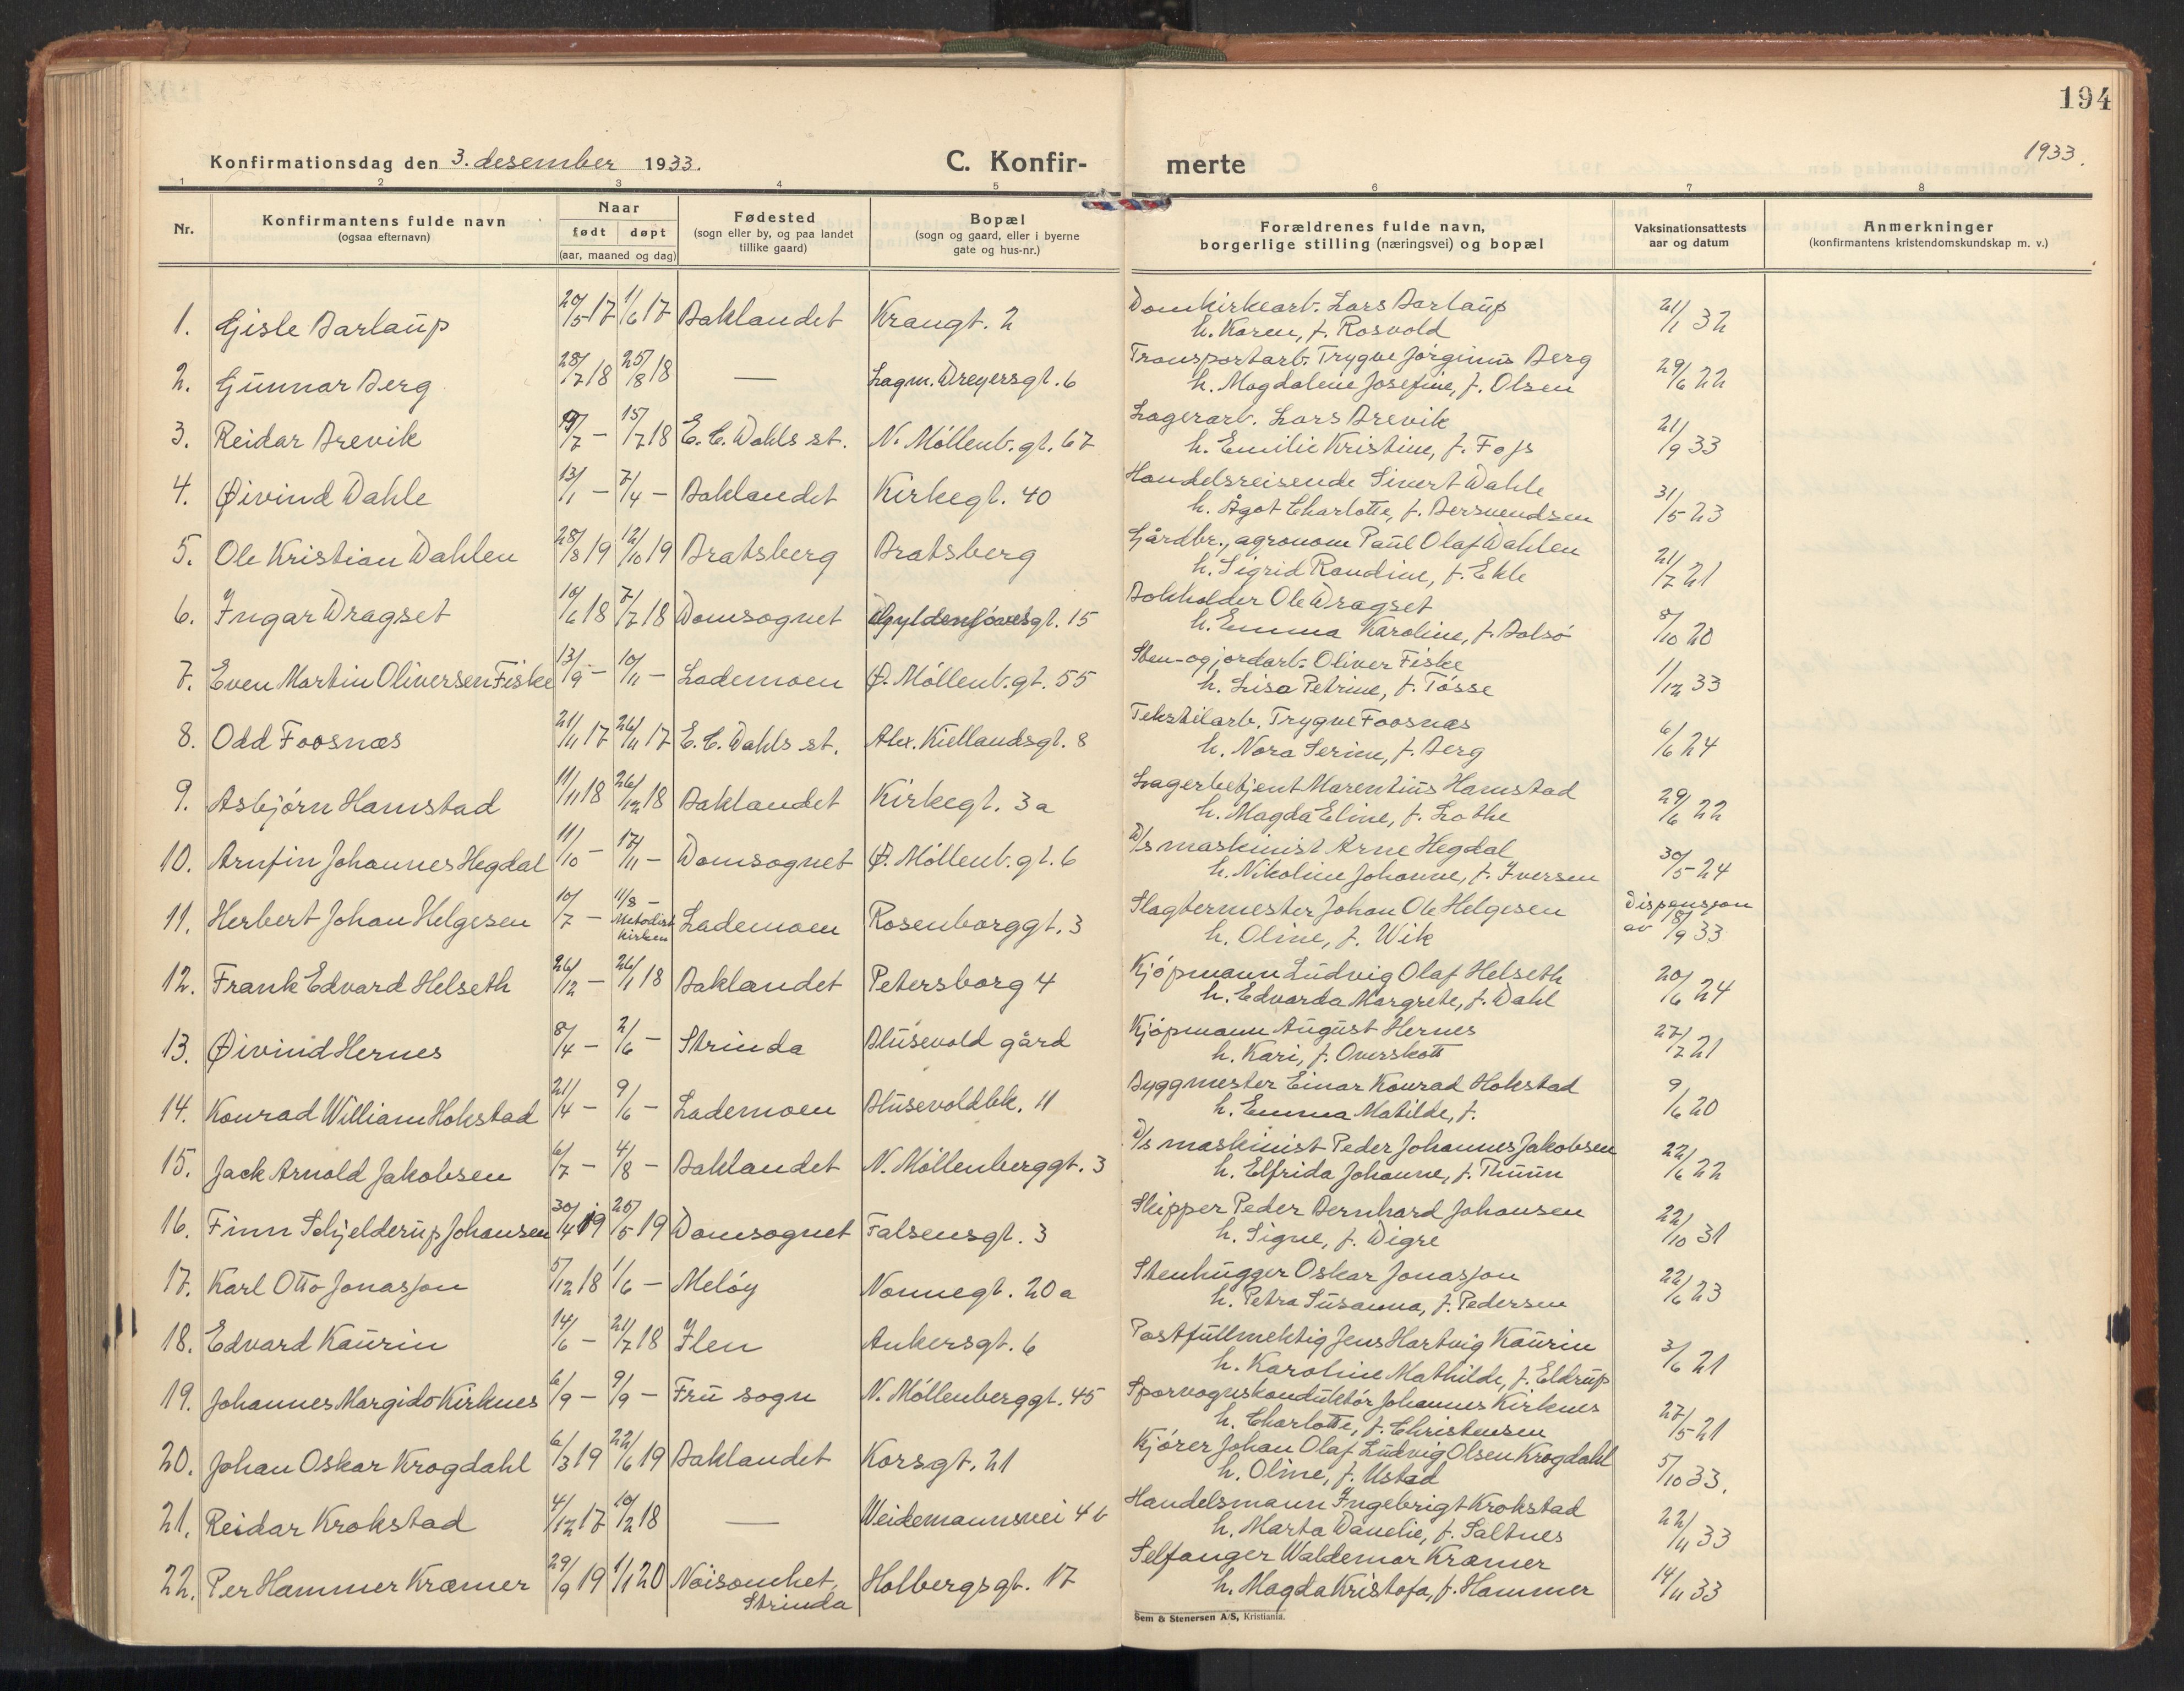 194
Konfirmationsdag den 3. desember 1933. C. Konfir- merte 1933.
1 2 3 4 5 6 7 8
Nr. Konfirmantens fulde navn (ogsaa efternavn) Naar født døpt (aar, maaned og dag) Fødested (sogn eller by, og paa landet tillike gaard) Bopæl (sogn og gaard, eller i byerne gate og hus-nr.) Forældrenes fulde navn, borgerlige stilling (næringsvei) og bopæl Vaksinationsattests aar og datum Anmerkninger (konfirmantens kristendomskundskap m. v.)
1. Gisle Barlaup 20/5 17 1/6 17 Baklandet Krangt. 2 Domkirkearb. Lars Barlaup 21/1 32
h. Karen, f. Rosvold
2. Gunnar Berg 28/7 18 25/8 18 — Lagm. Dreyersgt. 6 Transportarb. Trygve Jørginus Berg 29/6 22
h. Magdalene Josefine, f. Olsen
3. Reidar Brevik /7 – 15/7 18 E. C. Dahls st. N. Møllenb. gt. 67 Lagerarb. Lars Brevik 21/9 33
h. Emilie Kristine, f. Fojs
4. Øivind Dahle 13/1 – 7/4 – Baklandet Kirkegt. 40 Handelsreisende Sivert Dahle 31/5 23
h. Ågot Charlotte, f. Bersvendsen
5. Ole Kristian Dahlen 28/8 19 12/10 19 Bratsberg Bratsberg Gårdbr., agronom Paul Olaf Dahlen 21/7 21
h. Sigrid Randine, f. Ekle
6. Ingar Dragset 10/6 18 7/7 18 Domsognet Gyldenløvesgt. 15 Bokholder Ole Dragset 8/10 20
h. Emma Karoline, f. Bolsø
7. Even Martin Oliversen Fiske 13/9 – 10/11 – Lademoen Ø. Møllenb. gt. 55 Sten- og jordarb. Oliver Fiske 1/12 33
h. Lisa Petrine, f. Tøsse
8. Odd Foosnæs 21/11 17 26/11 17 E. C. Dahls st. Alex. Kiellandsgt. 8 Tekstilarb. Trygve Foosnæs 6/6 24
h. Nora Serine, f. Berg
9. Asbjørn Hamstad 11/11 18 26/12 18 Baklandet Kirkegt. 3a Lagerbetjent Marentius Hamstad 29/6 22
h. Magda Eline, f. Lothe
10. Arnfin Johannes Hegdal 11/10 – 17/11 – Domsognet Ø. Møllenb. gt. 6 D/s maskinist Arne Hegdal 30/5 24
h. Nikoline Johanne, f. Iversen
11. Herbert Johan Helgesen 10/7 – 11/8 – Metodistkirken Lademoen Rosenborggt. 3 Slagtermester Johan Ole Helgesen Dispensasjon av 18/9 33
h. Oline, f. Wik
12. Frank Edvard Helseth 26/12 – 26/1 18 Baklandet Petersborg 4 Kjøpmann Ludvig Olaf Helseth 20/6 24
h. Edvarda Margrete, f. Dahl
13. Øivind Hernes 8/4 – 2/6 – Strinda Blusevold gård Kjøpmann August Hernes 27/7 21
h. Kari, f. Overskott
14. Konrad William Hokstad 21/4 – 9/6 – Lademoen Blusevoldbk. 11 Byggmester Einar Konrad Hokstad 9/6 20
h. Emma Matilde, f.
15. Jack Arnold Jakobsen 6/7 – 4/8 – Baklandet N. Møllenberggt. 3 D/s maskinist Peder Johannes Jakobsen 22/6 22
h. Elfrida Johanne, f. Thuun
16. Finn Schjelderup Johansen 30/4 19 25/5 19 Domsognet Falsensgt. 3 Skipper Peder Bernhard Johansen 22/10 31
h. Signe, f. Digre
17. Karl Otto Jonasson 5/12 18 1/6 – Meløy Nonnegt. 20a Stenhugger Oskar Jonasson 22/6 23
h. Petra Susanna, f. Pedersen
18. Edvard Kaurin 14/6 – 21/7 18 Ilen Ankersgt. 6 Postfullmektig Jens Hartvig Kaurin 3/6 21
h. Karoline Mathilde, f. Eldrup
19. Johannes Margido Kirknes 6/9 – 9/9 – Fru sogn N. Møllenberggt. 45 Sporvognskonduktør Johannes Kirknes 27/5 21
h. Charlotte, f. Christensen
20. Johan Oskar Krogdahl 6/3 19 22/6 19 Baklandet Korsgt. 21 Kjører Johan Olaf Ludvig Olsen Krogdahl 5/10 33.
h. Oline, f. Ustad
21. Reidar Krokstad 4/12 17 10/2 18 — Weidemannsvei 4b Handelsmann Ingebrigt Krokstad 22/11 33
h. Marta Danelie, f. Saltnes
22. Per Hammer Kræmer 29/9 19 1/1 20 Noisomhet, Strinda Holbergsgt. 17 Selfanger Waldemar Kræmer 14/11 33
h. Magda Kristofa, f. Hammer
Sem & Stenersen A/S, Kristiania.